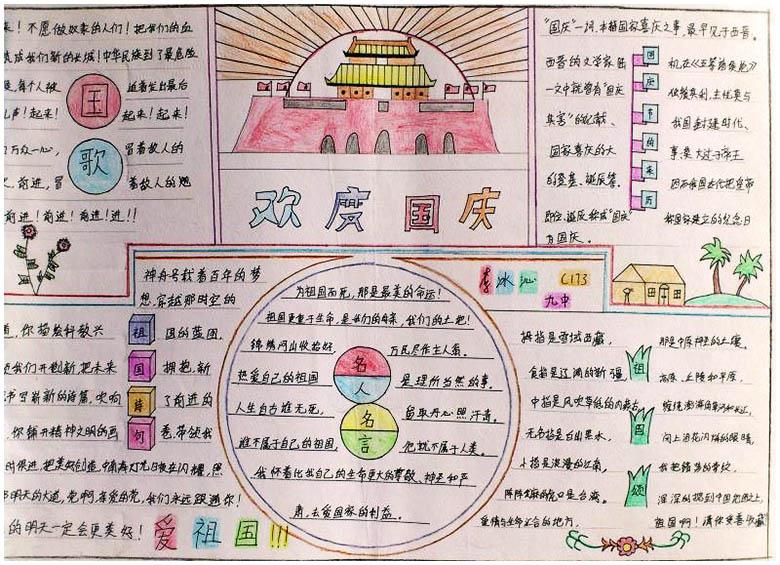 来！不愿做奴隶的人们！把我们的血
筑成我们新的长城！中华民族到了最危险
每个人被 迫着发出最后
吼声！起来！ 起来！起来！
万众一心， 冒着敌人的
前进，冒 着敌人的炮
前进！前进！前进！进！！
国
歌
欢度国庆
"国庆"一词，本指国家喜庆之事，最早见于西晋。
西晋的文学家陆 机在《五等诸侯论》
一文中就曾有"国庆 独飨其利，主忧莫与
其害"的记载、 我国封建时代、
国家喜庆的大 事，莫大过于帝王
的登基、诞辰等。 因而我国古代把皇帝
即位、诞辰称为"国庆" 称国家建立的纪念日
为国庆。
国庆节的来历
李冰沁 C173
九中
神舟号载着百年的梦
想，穿越那时空的
你描绘神放兴 国的蓝图，
我们开创新，把未来 拥抱，新
书写崭新的诗篇，吹响 了前进的
你铺开精神文明的画 卷，带领我
明天的大道，党啊，亲爱的党，我们永远跟随你！
的明天一定会更美好！
祖国诗句
爱祖国!!!
为祖国而死，那是最美的命运！
祖国更重于生命，是我们的母亲，我们的土地！
锦绣河山收拾好， 万民尽作主人翁。
热爱自己的祖国 是理所当然的事。
人生自古谁无死， 留取丹心照汗青。
谁不属于自己的祖国， 他就不属于人类。
我怀着比我自己的生命更大的尊敬、神圣和严
肃，去爱国家的利益。
名人
名言
拇指是雪域西藏， 那是中原押韵的土壤。
食指是辽阔的新疆 高原、丘陵和平原，
中指是风吹草低的内蒙古， 缠绕澎湃的黄河和长江，
无名指是白山黑水， 闪上浪花闪烁的眼睛，
小指是浪漫的江南， 我把精美的赞歌，
阵阵 的伤口是台湾。 深深烙摁到中国地图之上，
爱情与生命汇合的地方， 祖国啊！请你妥善收藏
祖国颂